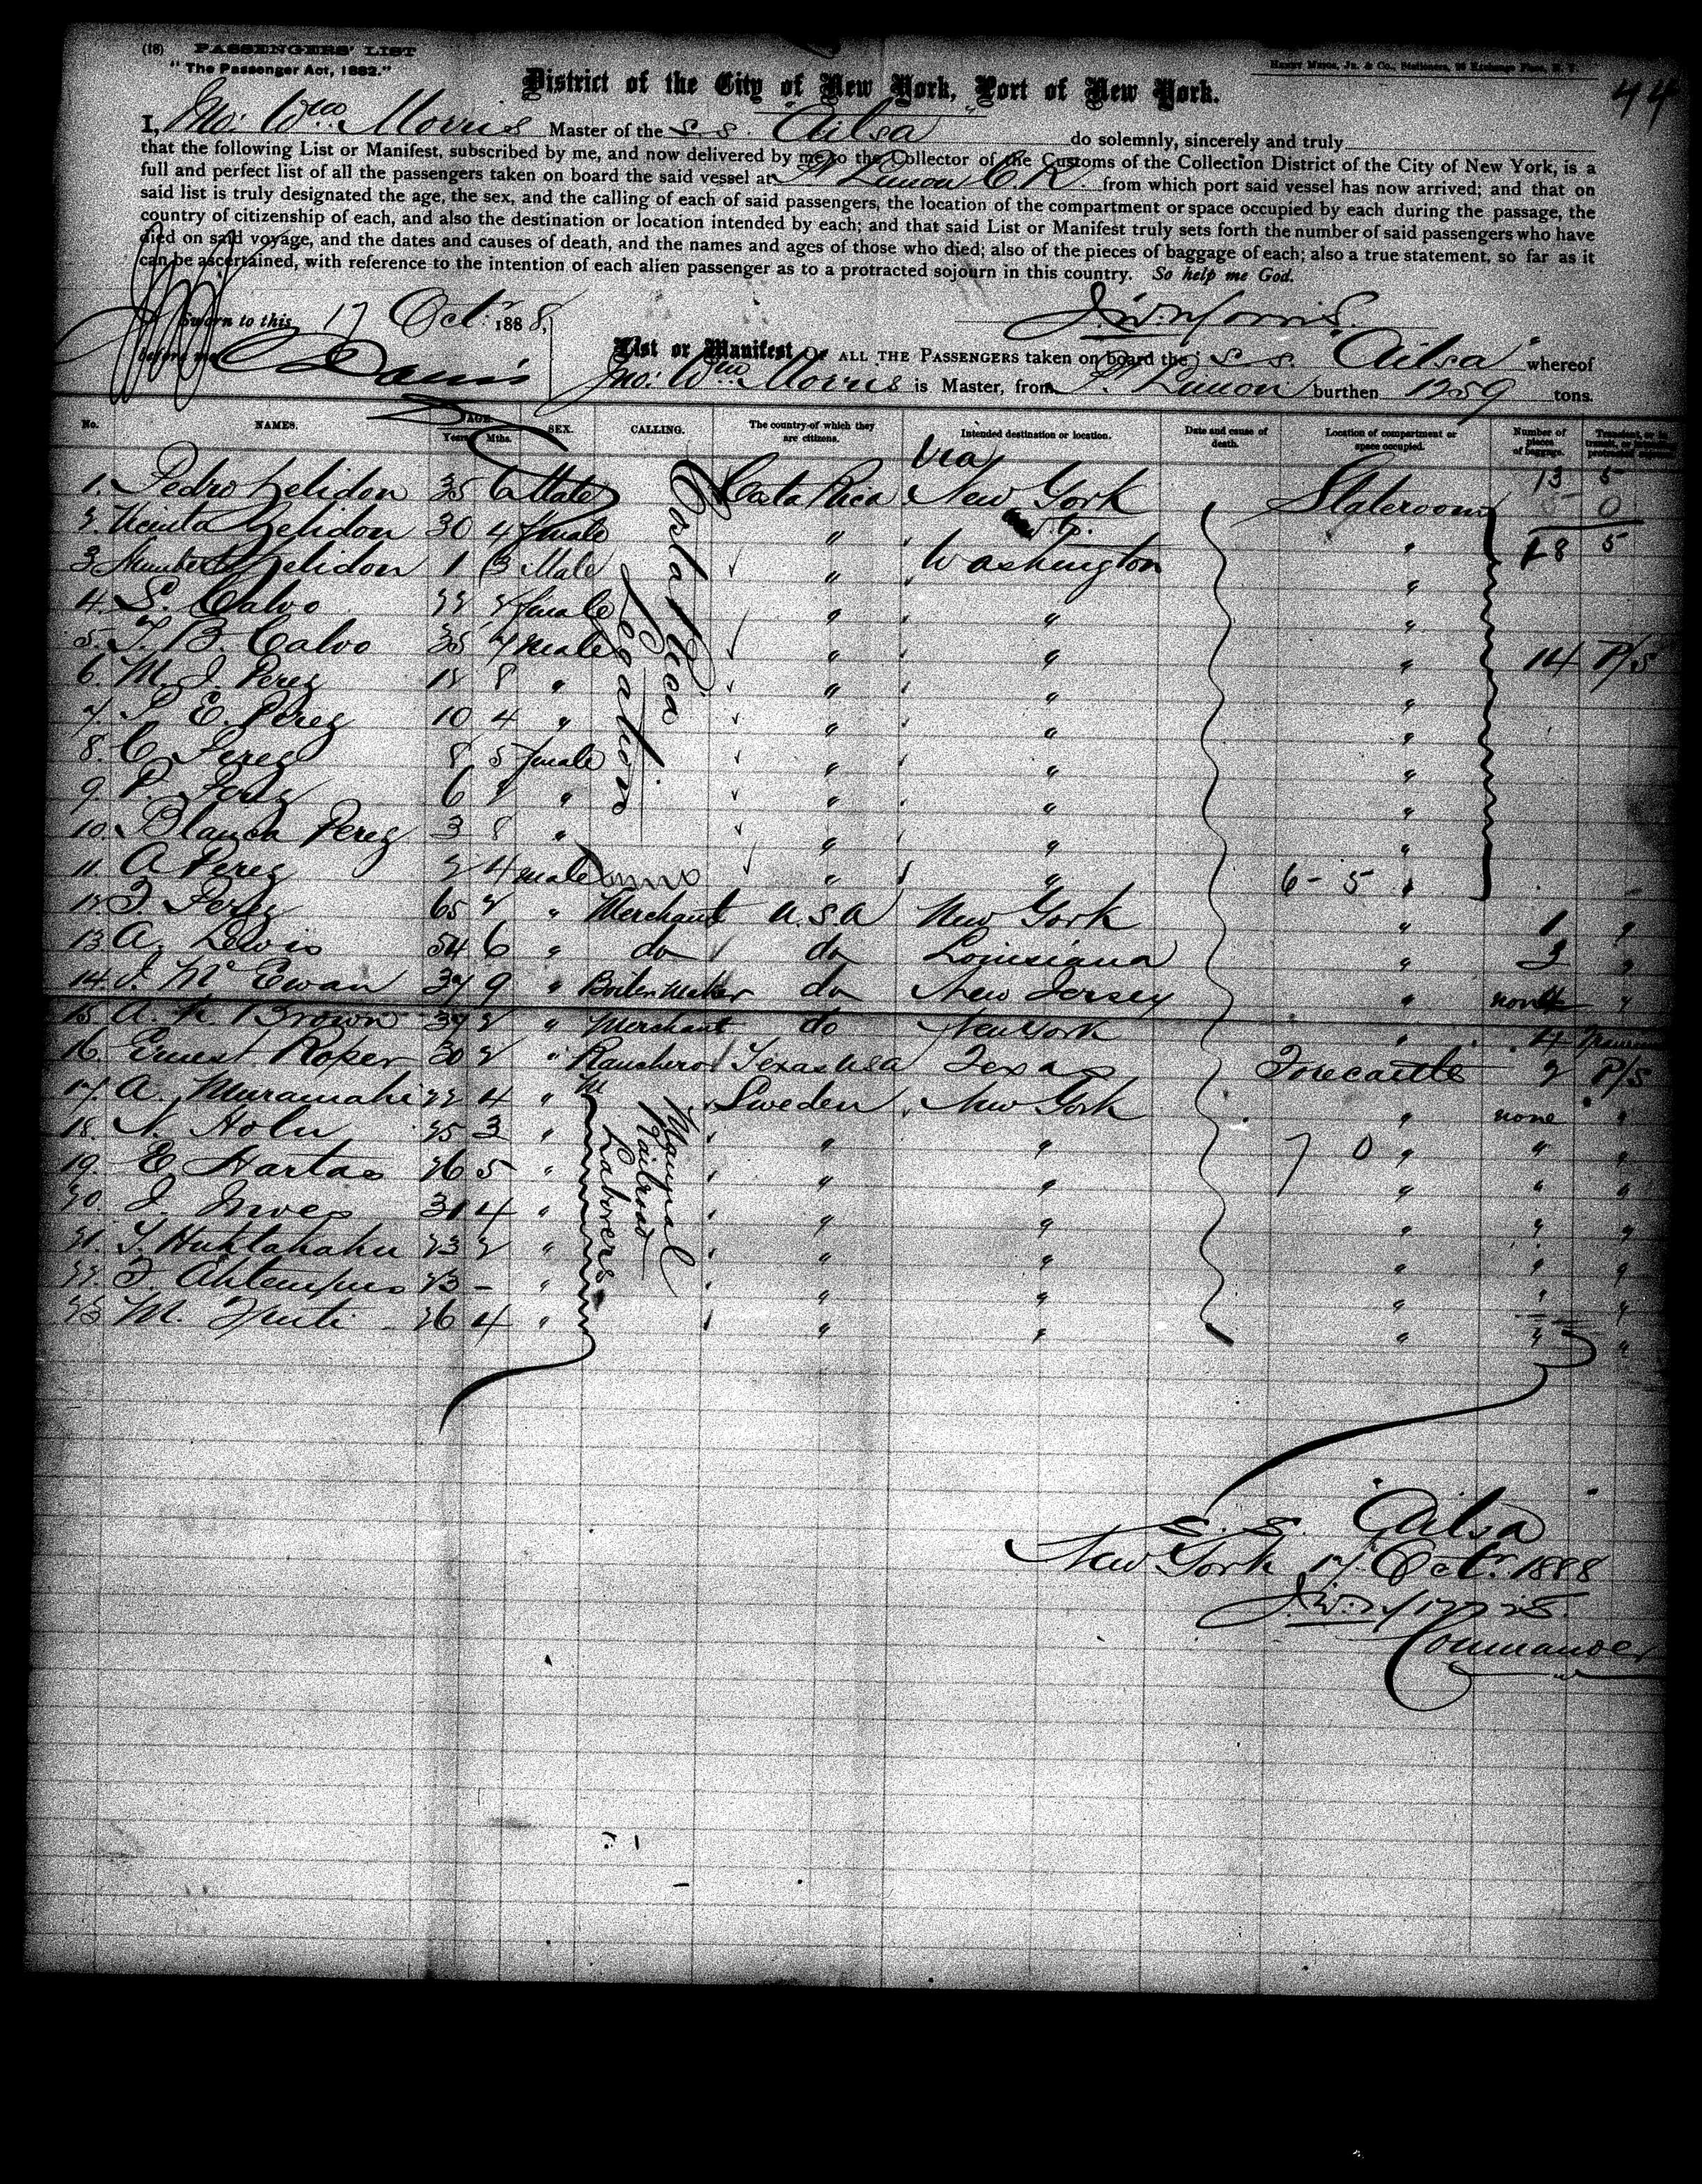 (18) PASSENGERS' LIST
"The Passenger Act, 1882."
44
District of the City of New York, Port of New York.
I, Jno: Wm Morris Master of the S. S. "Ailsa" do solemnly, sincerely and truly
that the following List or Manifest, subscribed by me, and now delivered by me to the Collector of the Customs of the Collection District of the City of New York, is a
full and perfect list of all the passengers taken on board the said vessel at Pt Limon C. R. from which port said vessel has now arrived; and that on
said list is truly designated the age, the sex, and the calling of each of said passengers, the location of the compartment or space occupied by each during the passage, the
country of citizenship of each, and also the destination or location intended by each; and that said List or Manifest truly sets forth the number of said passengers who have
died on said voyage, and the dates and causes of death, and the names and ages of those who died; also of the pieces of baggage of each; also a true statement, so far as it
can be ascertained, with reference to the intention of each alien passenger as to a protracted sojourn in this country. So help me God.
Sworn to this 17 Oct. 1888,
J. W. Morris
before me Davis
List or Manifest OF ALL THE PASSENGERS taken on board the S. S. "Ailsa" whereof
Jno: Wm Morris is Master, from P. Limon burthen 1259 tons.
No. NAMES. AGE. Years Mths. SEX. CALLING. The country of which they are citizens. Intended destination or location. Date and cause of death. Location of compartment or space occupied. Number of pieces of baggage.
Via
13 5
1. Pedro 35 6 Male Costa Rica New York Stateroom 5 0
2. 30 4 female " " 18 5
3. 1 3 Male " Washington "
4. S. Calvo 22 2 female " " "
5. J. B. Calvo 35 7 male " " " 14 P/S
6. M. J. Perez 12 8 " " " "
7. E. Perez 10 4 " " " "
8. C Perez 8 5 female " " "
9. P. Perez 6 2 " " " "
10. Blanca Perez 3 8 " " " "
11. A Perez 2 4 male " " 6 - 5 "
Costa Rica
Legation
12. J. Perez 65 2 " Merchant U.S.A New York " 1 "
13 A. Lewis 54 6 " do do Louisiana " 3 "
14. J. Mc Ewan 37 9 " Boiler Maker do New Jersey " none "
15. A. K. Brown 37 2 " Merchant do New York " 4
16. Ernest Roper 30 2 " Ranchero Texas USA Texas Forecastle 2 P/S
17. A. Muramahi 22 4 " Sweden New York " none "
18. N. Holm 25 3 " " " " " "
7 0
19. E Hartas 26 5 " " " " " "
20. J. 31 4 " " " " " "
21. J. Huhtahahu 23 2 " " " " " "
22. J. 23 - " " " " " "
23 M. 26 4 " " " " " "
Manual
Railroad
Laborers
S. S. "Ailsa"
New York 17 Octr. 1888
J. W. Morris
Commander